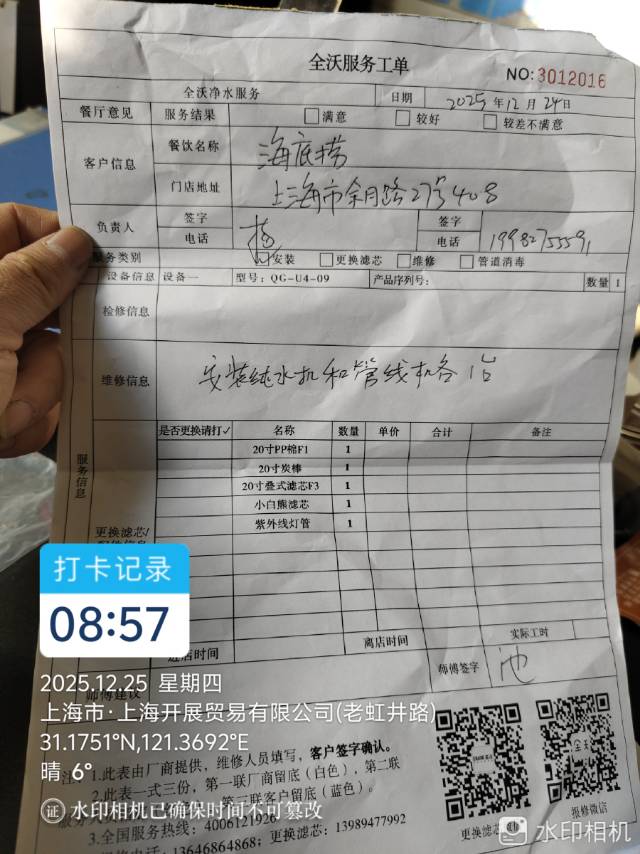 全沃服务工单
NO:3012016
全沃净水服务 日期 2025年12月24日
餐厅意见 服务结果 满意 较好 较差不满意
客户信息 餐饮名称 海底捞
门店地址 上海市余月路27号408
负责人 签字 签字
电话 电话 19982755591
服务类别 安装 更换滤芯 维修 管道消毒
设备信息 设备一 型号: QG-U4-09 产品序列号: 数量 1
检修信息
维修信息 安装纯水机和管线机各1台
服务信息
是否更换请打✓ 名称 数量 单价 合计 备注
20寸PP棉F1 1
20寸炭棒 1
20寸叠式滤芯F3 1
小白熊滤芯 1
紫外线灯管 1
更换滤芯/
打卡记录
08:57
进店时间 离店时间 实际工时
师傅签字 池
师傅建议
2025.12.25 星期四
上海市·上海开展贸易有限公司(老虹井路)
31.1751°N,121.3692°E
晴 6°
1.此表由厂商提供，维修人员填写，客户签字确认。
2.此表一式三份，第一联厂商留底（白色），第二联
第三联客户留底（蓝色）。
水印相机已确保时间不可篡改
3.全国服务热线：4006121926
13646864868；更换滤芯：13989477992
更换滤芯
报修微信
水印相机